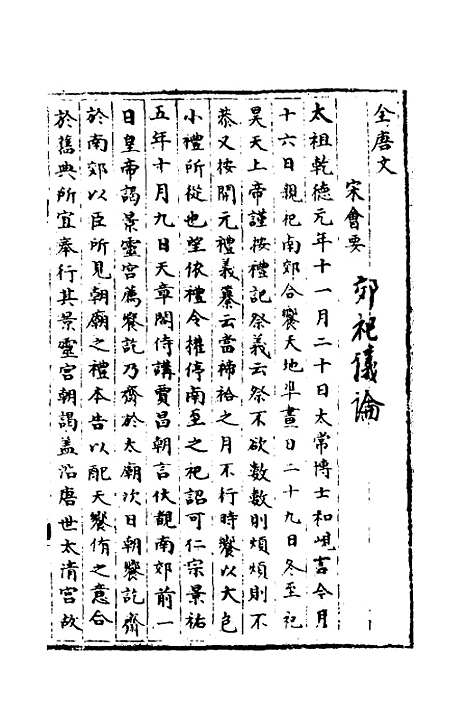 全唐文
宋會要
郊祀儀論
太祖乾德元年十一月二十日太常博士和峴言今月
十六日親祀南郊合饗天地準畫日二十九日冬至祀
昊天上帝謹按禮記祭義云祭不欲數數則煩煩則不
恭又按開元禮義纂云當禘祫之月不行時饗以大包
小禮所從也望依禮令權停南至之祀詔可仁宗景祐
五年十月九日天章閣侍講賈昌朝言伏覩南郊前一
日皇帝謁景靈宮薦饗訖乃齋於太廟次日朝饗訖齋
於南郊以臣所見朝廟之禮本告以配天饗侑之意合
於舊典所宜奉行其景靈宮朝謁盖沿唐世太清宮故